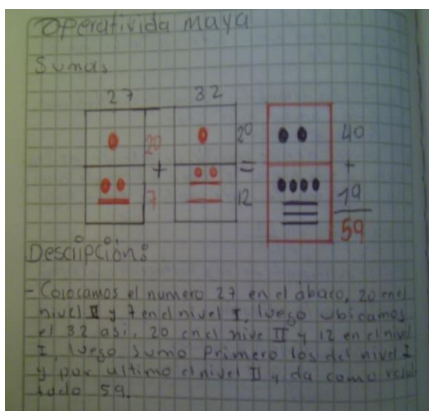 Operativida maya
Sumas
27 32
20 20 40
+ = +
7 12 19
59
Descripción:
- Colocamos el numero 27 en el ábaco, 20 en el
nivel II y 7 en el nivel I, luego ubicamos
el 32 asi, 20 en el nive II y 12 en el nivel
I luego sumo primero los del nivel I
y por ultimo el nivel II y da como resul
tado 59.